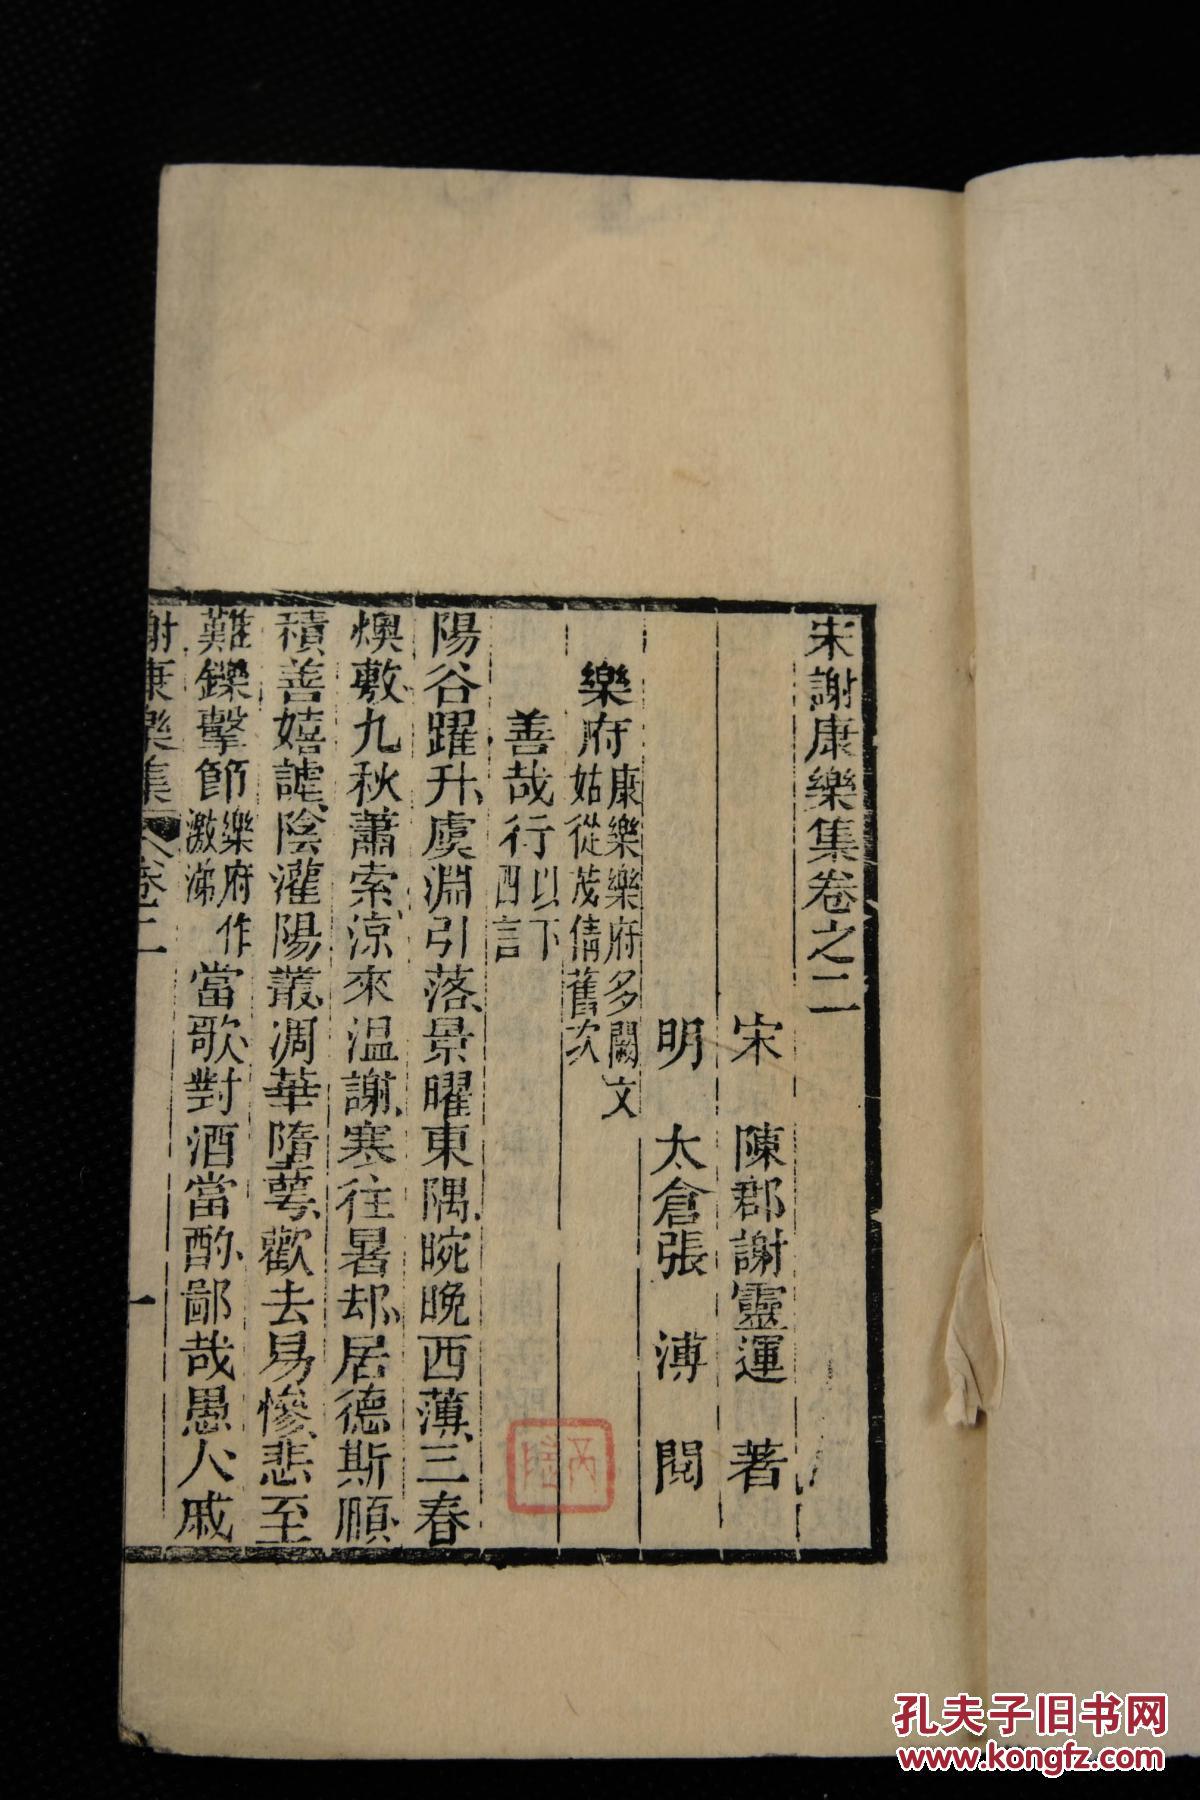 宋謝康樂集卷之二
宋　陳郡謝靈運　著
明　太倉張　溥　閱
樂府康樂樂府多闕文
姑從茂倩舊次
善哉行以下
四言
陽谷躍升、虞淵引落、景曜東隅、晼晚西薄、三春
燠敷、九秋蕭索、涼來温謝、寒往暑却、居德斯順、
積善嬉謔、陰灌陽叢、凋華墮萼、歡去易慘、悲至
難鑠、擊節樂府作
激涕當歌、對酒當酌、鄙哉愚人、戚
謝康樂集　卷二　一
孔夫子旧书网
www.kongfz.com